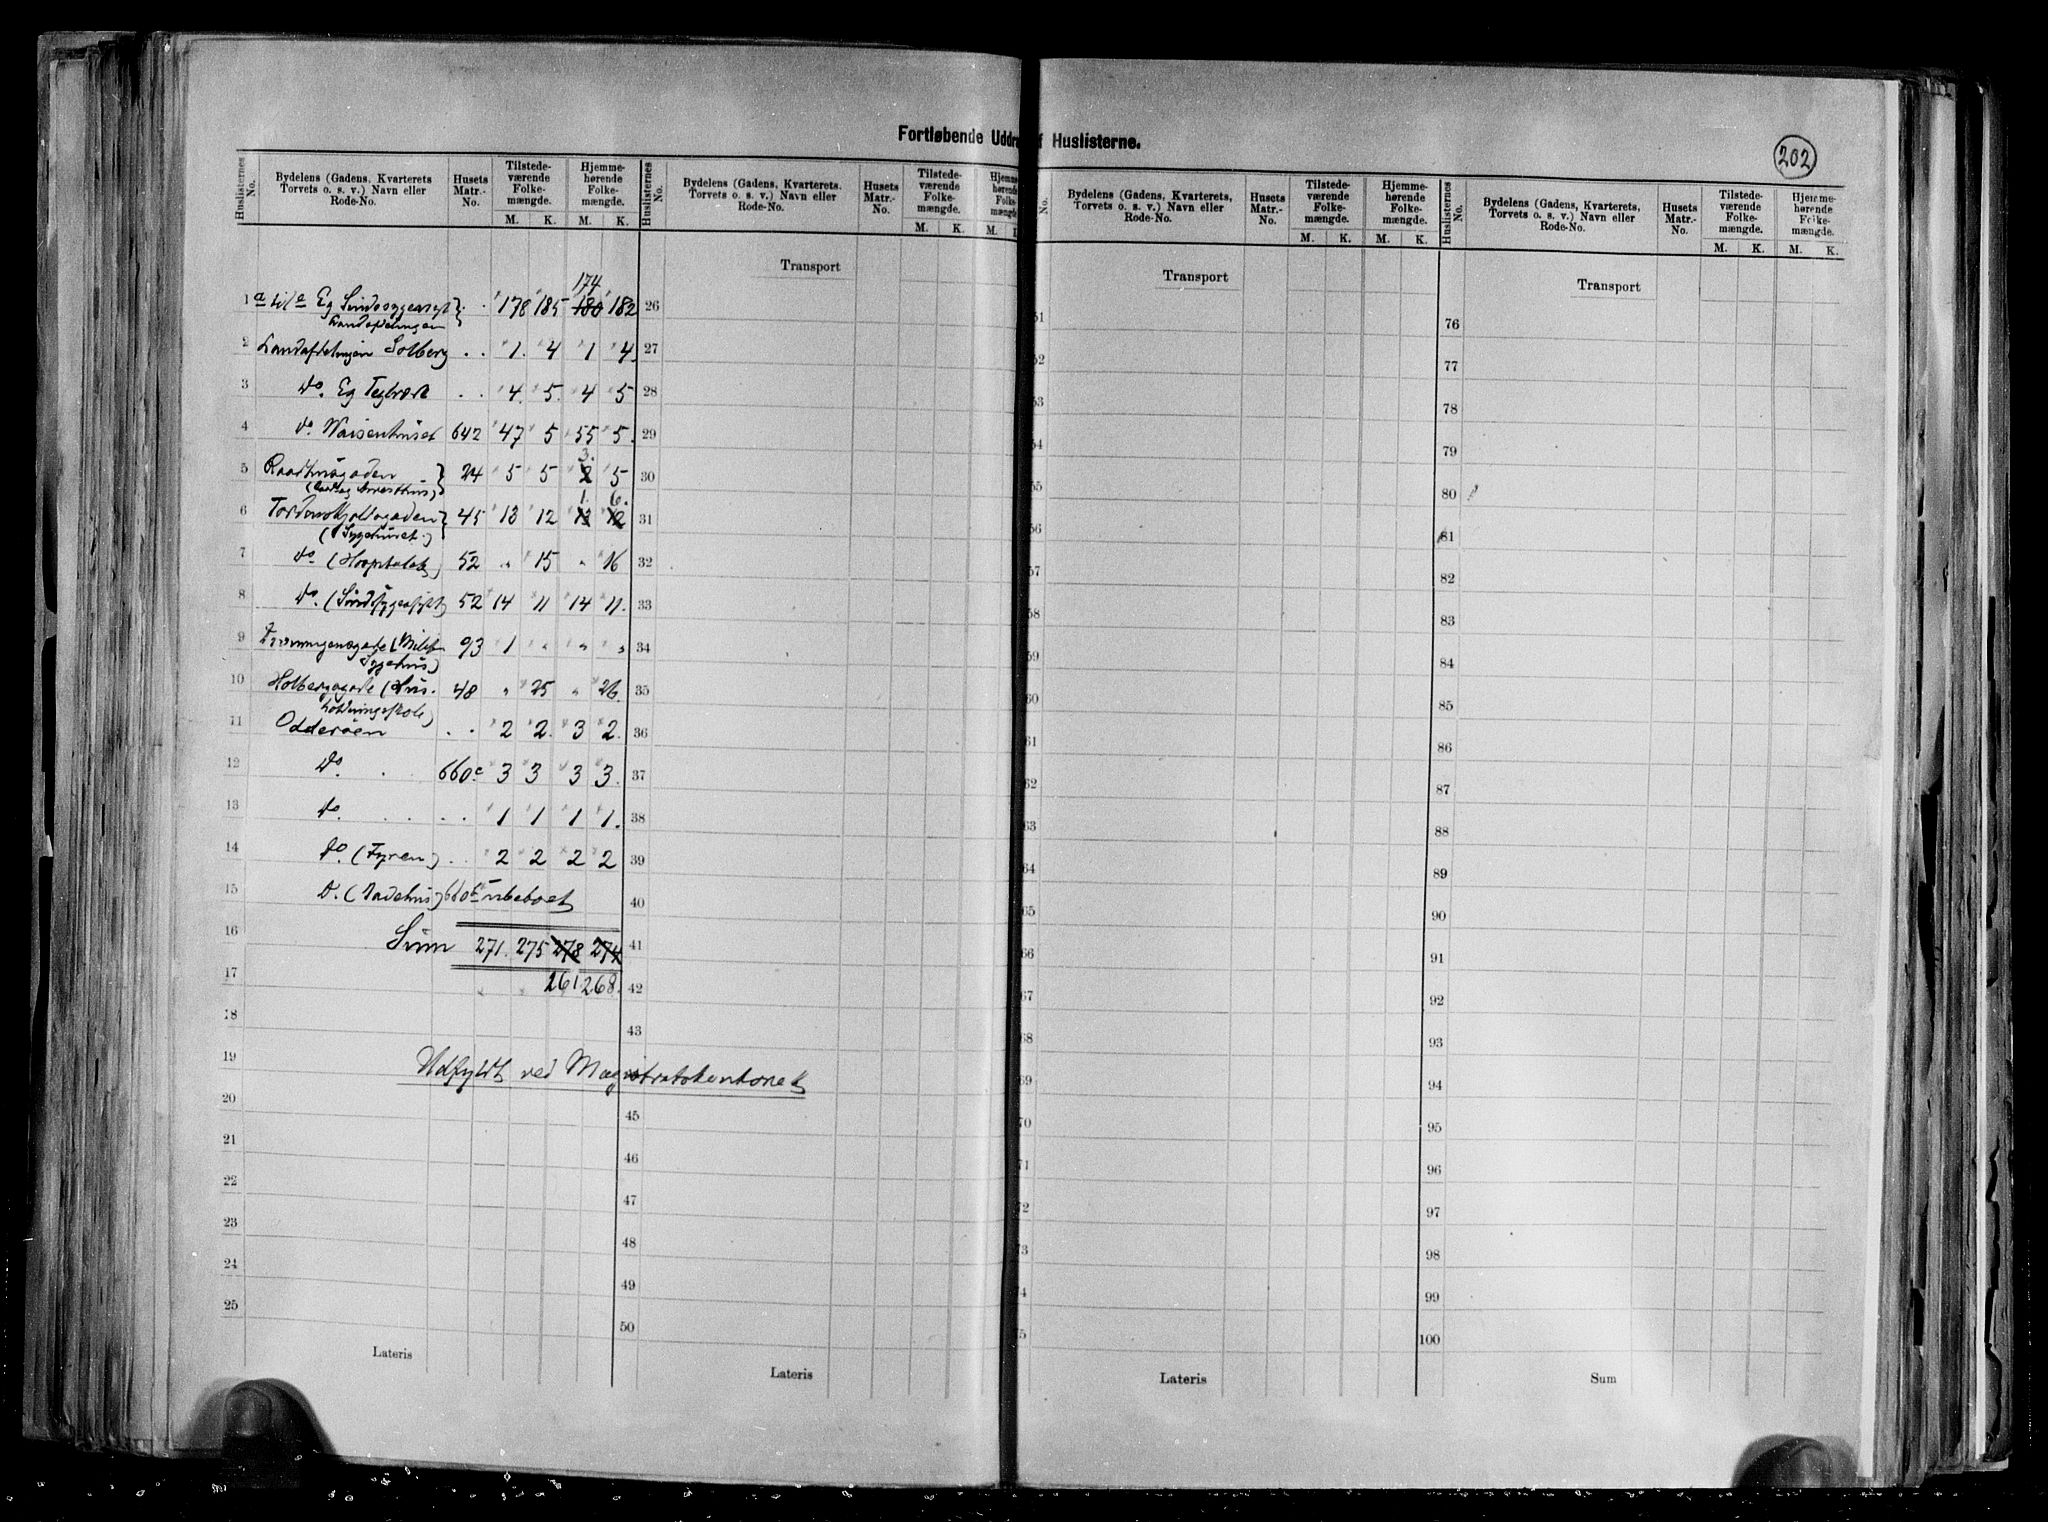 Fortløbende Uddra f Huslisterne.
202
Huslisternes No.
Bydelens (Gadens, Kvarterets
Torvets o. s. v.) Navn eller
Rode-No.
Husets Matr.-No.
Tilstede-værende Folke-mængde. M. K.
Hjemme-hørende Folke-mængde. M. K.
Huslisternes No.
Bydelens (Gadens, Kvarterets.
Torvets o. s. v.) Navn eller
Rode-No.
Husets Matr.-No.
Tilstede-værende Folke-mængde. M. K.
Hjemme-hørende Folke-mængde. M.
No.
Bydelens (Gadens, Kvarterets,
Torvets o. s. v.) Navn eller
Rode-No.
Husets Matr.-No.
Tilstede-værende Folke-mængde. M. K.
Hjemme-hørende Folke-mængde. M. K.
Huslisternes No.
Bydelens (Gadens, Kvarterets,
Torvets o. s. v.) Navn eller
Rode-No.
Husets Matr.-No.
Tilstede-værende Folke-mængde. M. K.
Hjemme-hørende Folke-mængde. M. K.
Transport
Transport
Transport
174
1 a til e Eg Sindssygeasyl } . . 178 185 180 182 26
Landafdelingen
2 Landafdelingen Solberg . . 1. 4 1 4. 27
3 Do. Eg Teglværk . . 4. 5. 4 5 28
4 Do. Waisenhuset 642 47 5 55 5. 29
3.
5 Raadhusgaden } 24 5 5 2 5 30
Arresthus)
1. 6.
6 Tordenskjoldsgaden } 45 13 12 13 12 31
(Sygehuset.)
7 Do (Hospitalet) 52 " 15 " 16 32
8 Do. (Sindssygeasylet) 52 14 11 14 11. 33
9 Dronningensgade (Milit. 93 1 " " " 34
Sygehus)
10 Holbergsgade (Hus- 48 " 25 " 26. 35
holdningsskole)
11 Odderøen . . 2 2. 3 2. 36
12 Do. . 660.c 3 3 3 3. 37
13 Do. . . . . 1 1 1 1. 38
14 Do. (Fyren) . . 2 2 2 2 39
15 D. (Badehus) 660 Ubeboet 40
16 Sum 271. 275 278 274 41
17 261 268. 42
18 43
19 Udfyldt ved Magistratskontoret
20 45
21 46
22 47
23 48
24 49
25 50
51 76
52 77
53 78
54 79
55 80
56 81
57 82
58 83
59 84
60 85
61 86
62 87
63 88
64 89
65 90
66 91
67 92
68 93
69 94
70 95
71 96
72 97
73 98
4 99
5 100
Lateris
Lateris
Lateris
Sum